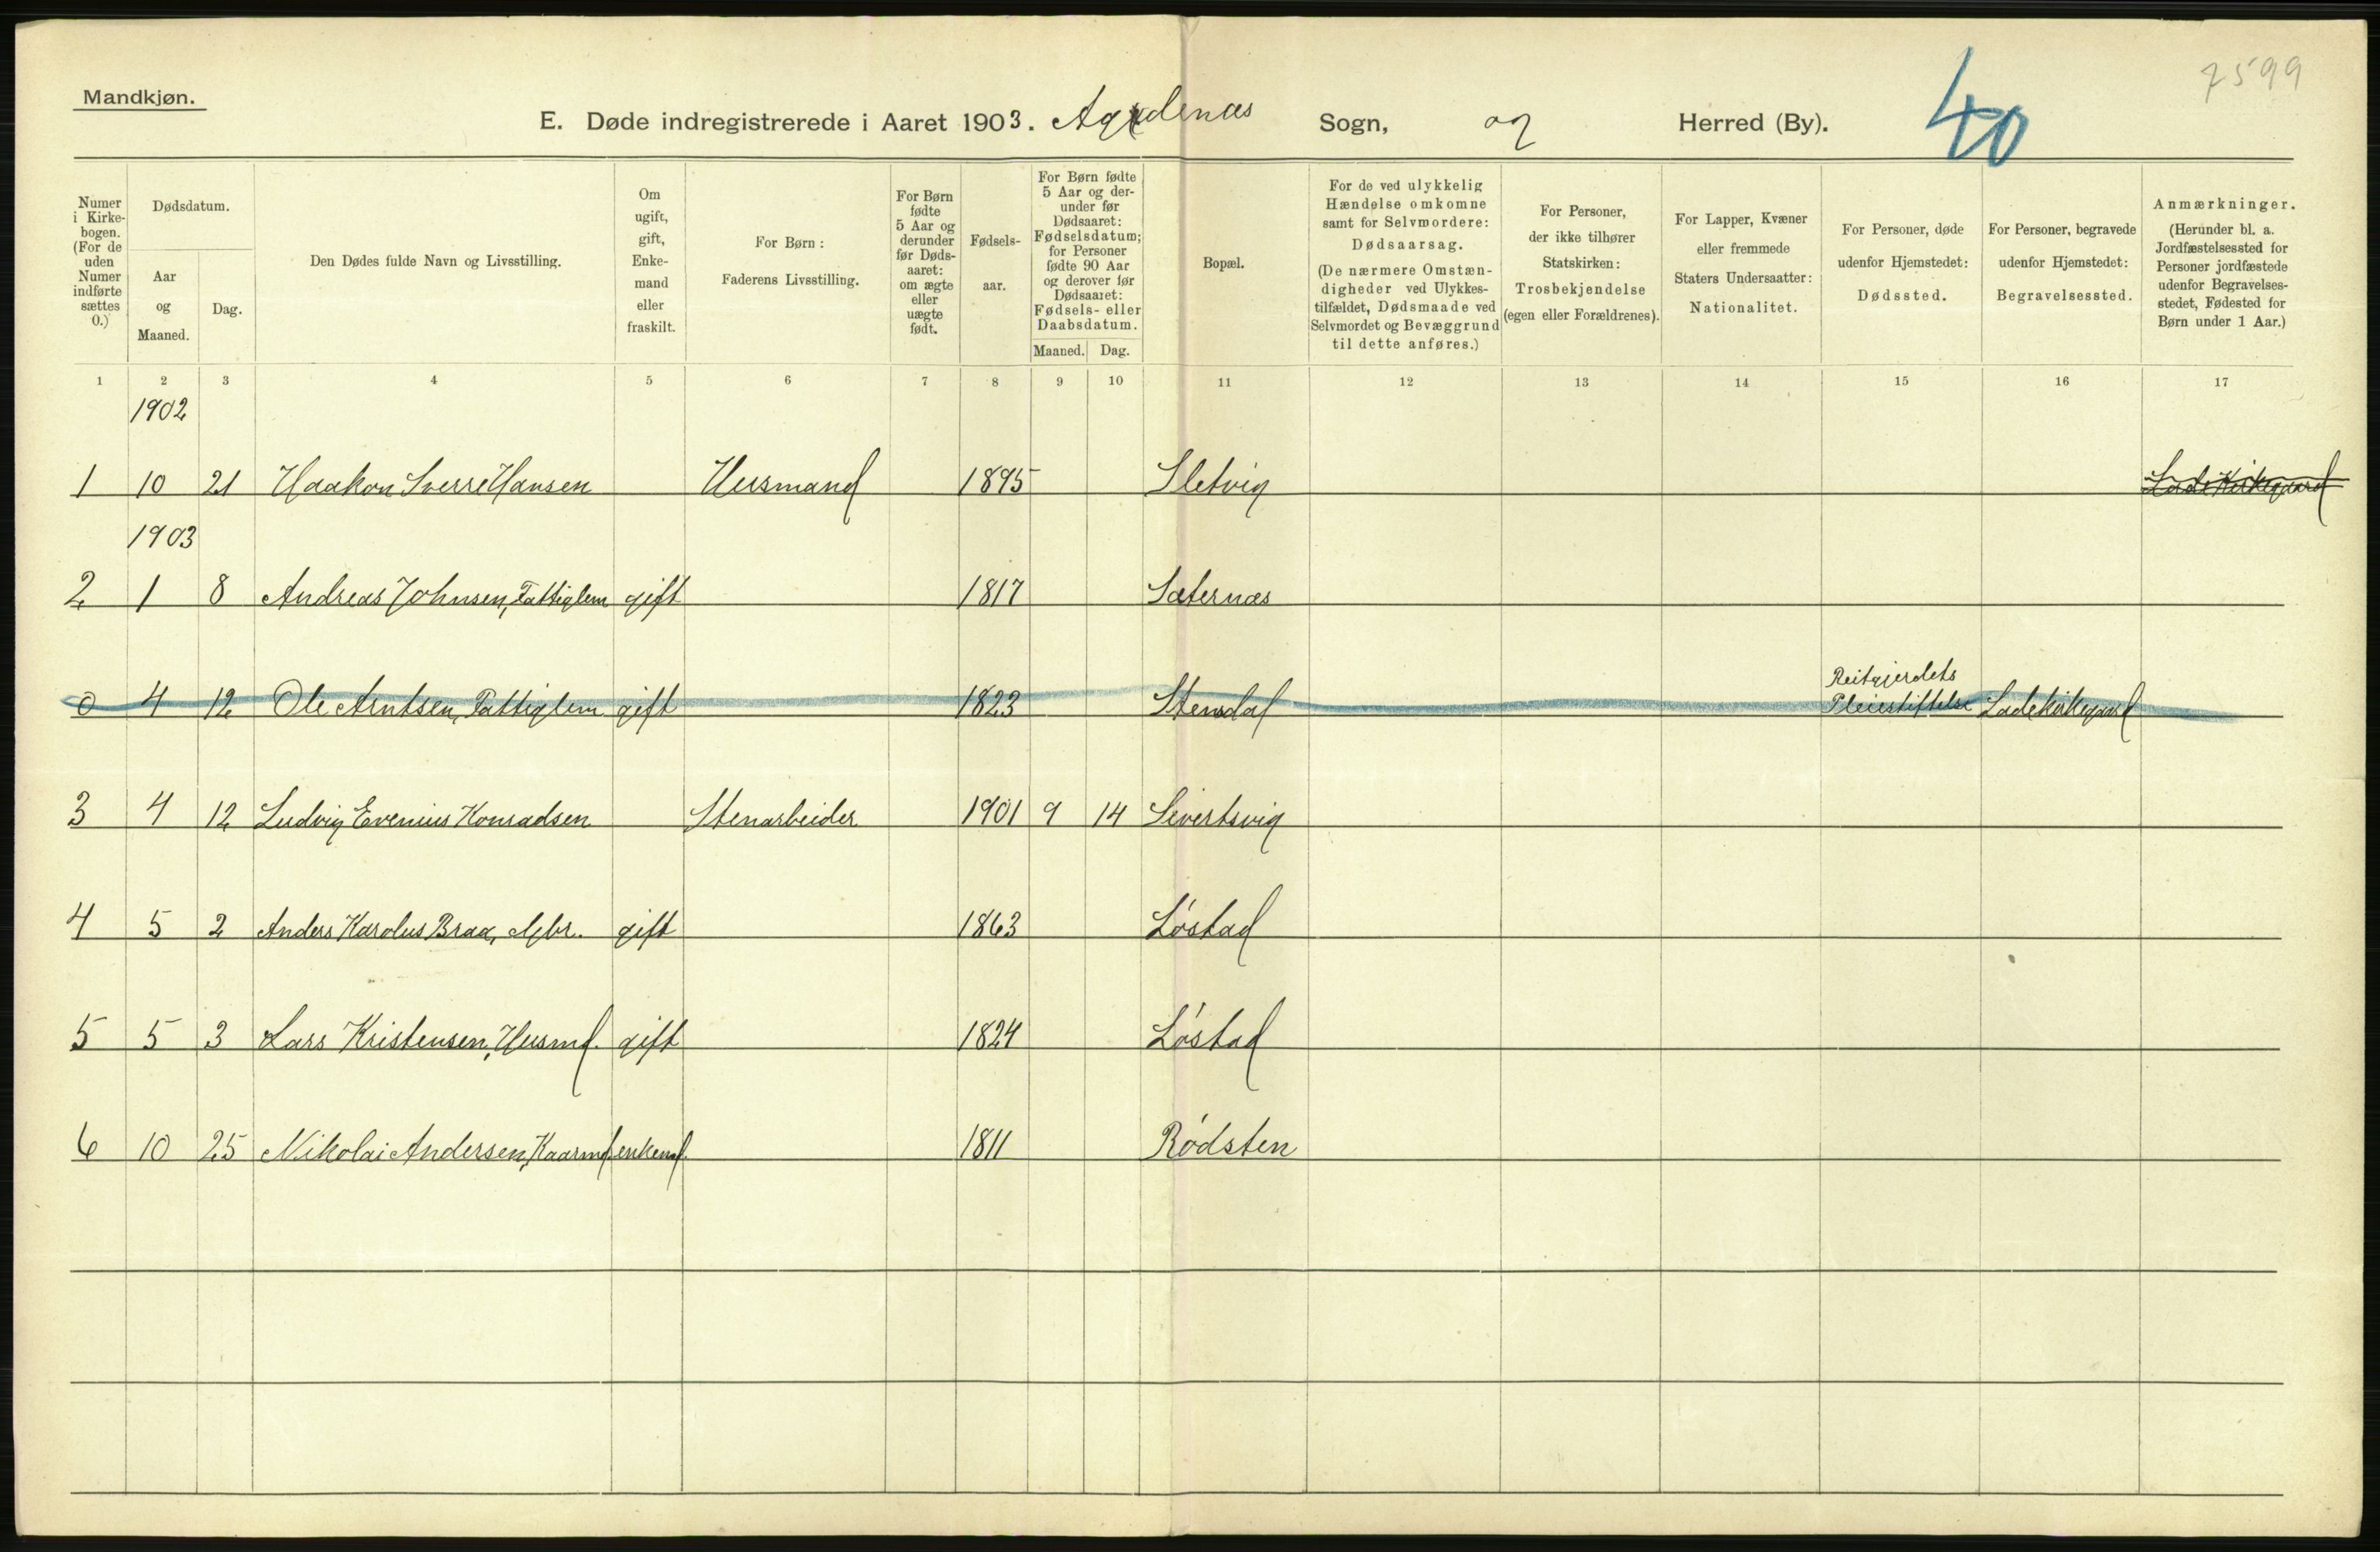 7599
40
Mandkjøn.
E. Døde indregistrerede i Aaret 1903. Agdenæs Sogn, og Herred (By).
Numer i Kirkebogen. (For de uden Numer indførte sættes 0.)
Dødsdatum.
Aar og Maaned.
Dag.
Den Dødes fulde Navn og Livsstilling.
Om ugift, gift, Enkemand eller fraskilt.
For Børn: Faderens Livsstilling.
For Børn fødte 5 Aar og derunder før Dødsaaret: om ægte eller uægte født.
Fødselsaar.
For Børn fødte 5 Aar og derunder før Dødsaaret: Fødselsdatum; for Personer fødte 90 Aar og derover før Dødsaaret: Fødsels- eller Daabsdatum.
Maaned. Dag.
Bopæl.
For de ved ulykkelig Hændelse omkomne samt for Selvmordere: Dødsaarsag. (De nærmere Omstændigheder ved Ulykkestilfældet, Dødsmaade ved Selvmordet og Bevæggrund til dette anføres.)
For Personer, der ikke tilhører Statskirken: Trosbekjendelse (egen eller Forældrenes).
For Lapper, Kvæner eller fremmede Staters Undersaatter: Nationalitet.
For Personer, døde udenfor Hjemstedet: Dødssted.
For Personer, begravede udenfor Hjemstedet: Begravelsessted.
Anmærkninger. (Herunder bl. a. Jordfæstelsessted for Personer jordfæstede udenfor Begravelsesstedet, Fødested for Børn under 1 Aar.)
1 2 3 4 5 6 7 8 9 10 11 12 13 14 15 16 17
1902
1 10 21 Haakon Sverre Hansen Husmand 1895 Sletvig Lade Kirkegaard
1903
2 1 8 Andreas Johnsen, Fattiglem gift 1817 Sæternæs
0 4 12 Ole Arntsen, Fattiglem gift 1823 Stensdal Reitgjerdets Pleiestiftelse Lade kirkegaard
3 4 12 Ludvig Evenius Konradsen Stenarbeider 1901 9 14 Sivertsvig
4 5 2 Anders Karolus Braa, Gbr. gift 1863 Løstad
5 5 3 Lars Kristensen, Husmd. gift 1824 Løstad
6 10 25 Nikolai Andersen, Kaarmd. enkemd. 1811 Rødsten